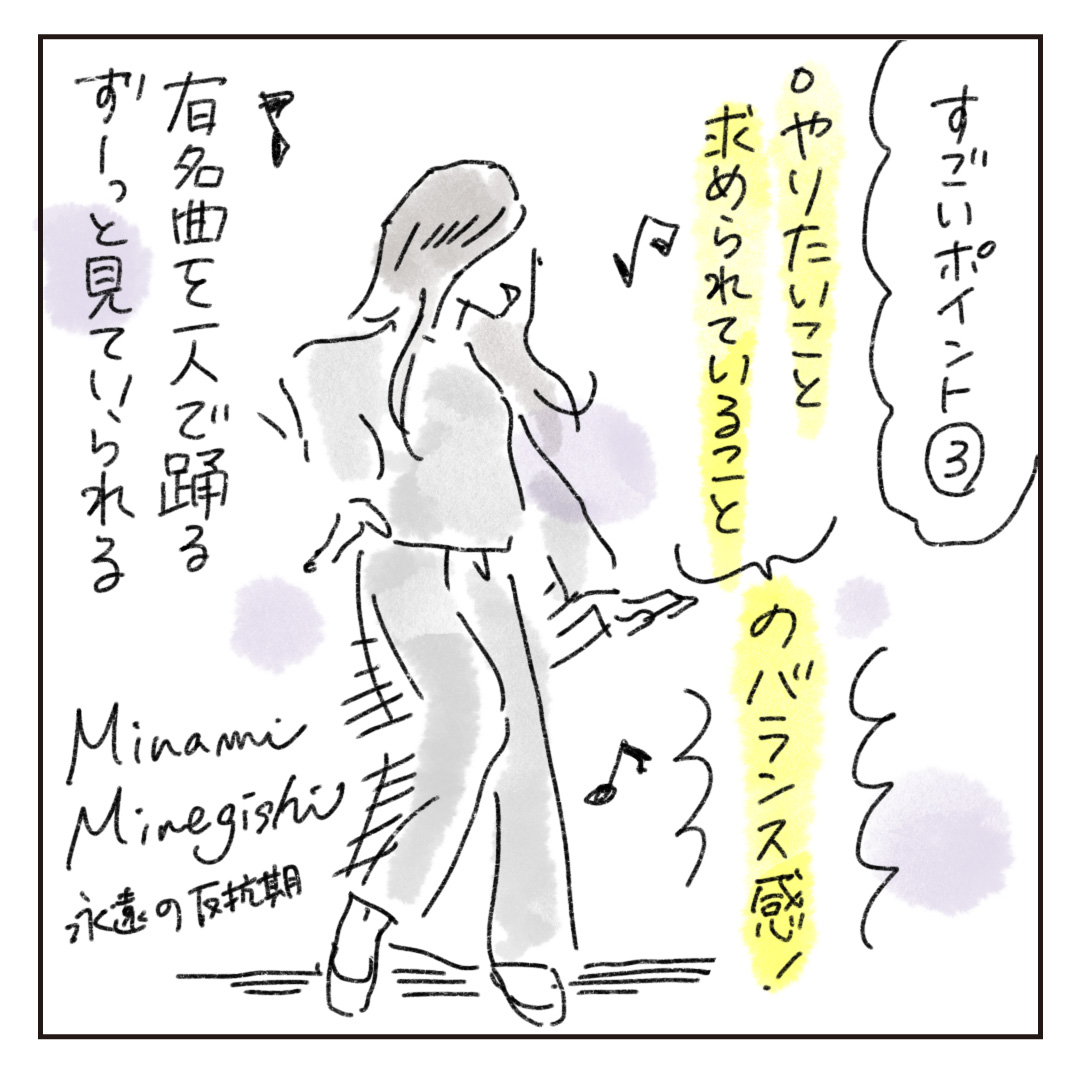 すごいポイント③
○やりたいこと
求められていること
のバランス感!
有名曲を一人で踊る
ずーっと見ていられる
Minami
Minegishi
永遠の反抗期